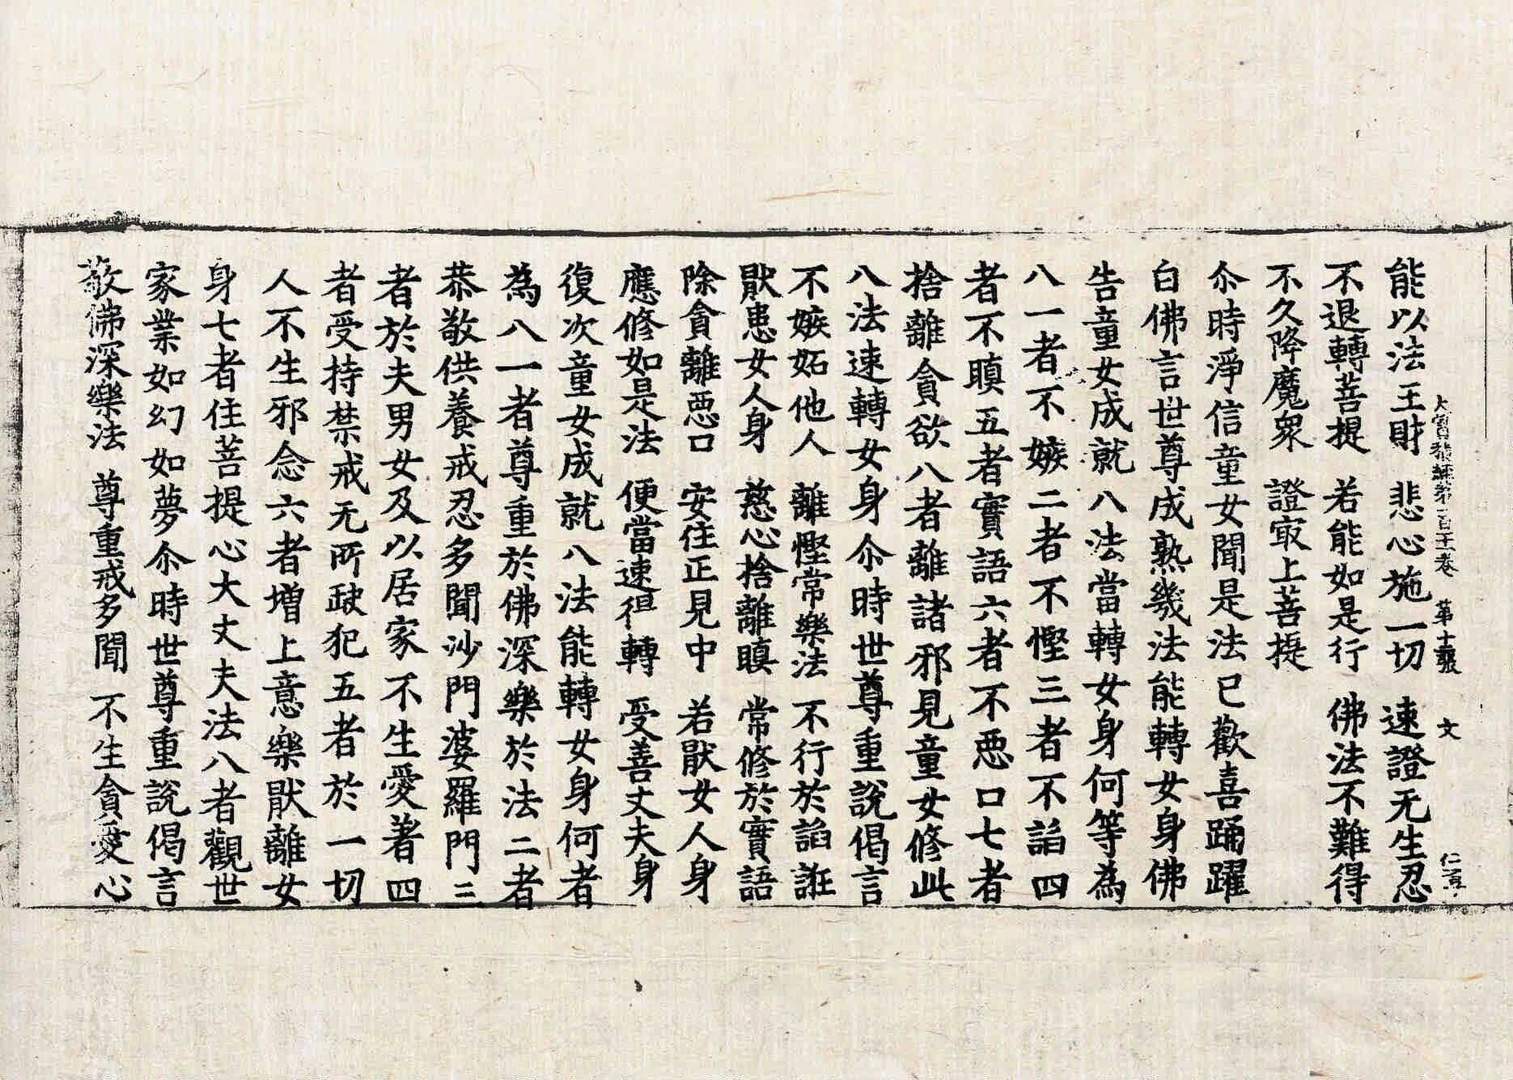 大寶積經第一百十一卷 第十張 文
能以法王財 悲心施一切 速證无生忍
不退轉菩提 若能如是行 佛法不難得
不久降魔衆 證㝡上菩提
尒時淨信童女聞是法已歡喜踊躍
白佛言世尊成熟幾法能轉女身佛
告童女成就八法當轉女身何等為
八一者不嫉二者不慳三者不諂四
者不瞋五者實語六者不惡口七者
捨離貪欲八者離諸邪見童女修此
八法速轉女身尒時世尊重說偈言
不嫉妬他人 離慳常樂法 不行於諂誑
猒患女人身 慈心捨離瞋 常修於實語
除貪離惡口 安住正見中 若猒女人身
應修如是法 便當速得轉 受善丈夫身
復次童女成就八法能轉女身何者
為八一者尊重於佛深樂於法二者
恭敬供養戒忍多聞沙門婆羅門三
者於夫男女及以居家不生愛著四
者受持禁戒无所缺犯五者於一切
人不生邪念六者增上意樂猒離女
身七者住菩提心大丈夫法八者觀世
家業如幻如夢尒時世尊重說偈言
敬佛深樂法 尊重戒多聞 不生貪愛心